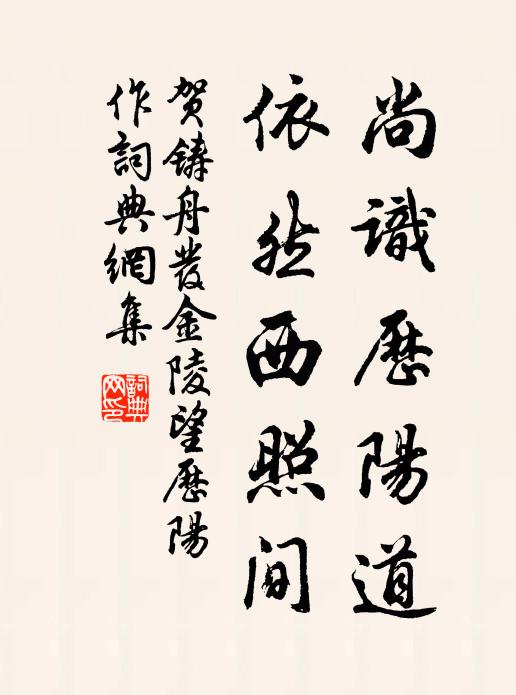 尚識歷陽道
依然西照間
賀鑄舟發金陵望歷陽
作詞典網集
詞典網印